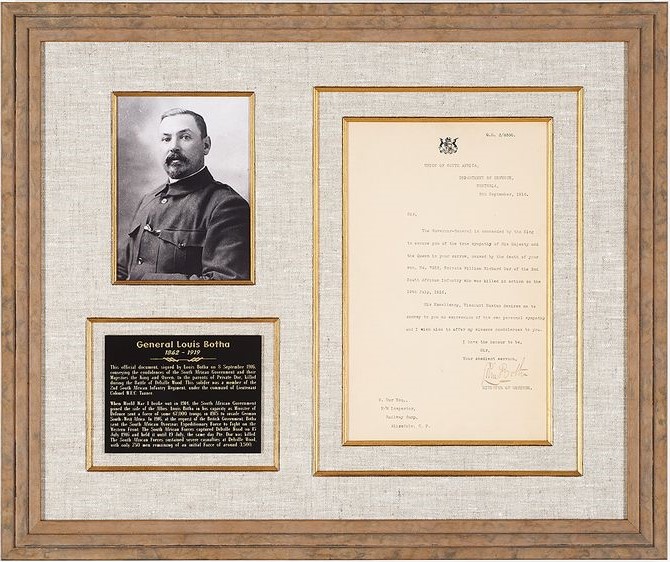 General Louis Botha
1862 - 1919
This official document, signed by Louis Botha on 8 September 1916,
conveying the condolences of the South African Government and their
Majesties the King and Queen, to the parents of Private Dur, killed
during the Battle of Delville Wood. This soldier was a member of the
2nd South African Infantry Regiment, under the command of Lieutenant
Colonel W.E.C Tanner
When World War I broke out in 1914, the South African Government
joined the side of the Allies. Louis Botha in his capacity as Minister of
Defence sent a force of some 67,000 troops, in 1915 to invade German
South-West Africa. In 1916, at the request of the British Government, Botha
sent the South African Overseas Expeditionary Force to fight on the
Western Front. The South African Forces captured Delville Wood on 15
July 1916 and held it until 19 July, the same day Pte. Dur was killed.
The South African Forces sustained severe casualties at Delville Wood,
with only 750 men remaining of an initial Force of around 3,500.
UNION OF SOUTH AFRICA.
DEPARTMENT OF DEFENCE,
PRETORIA,
8th September, 1916.
Sir,
The Governor-General is commanded by the King
to assure you of the true sympathy of His Majesty and
the Queen in your sorrow, caused by the death of your
son, No. Private William Richard of the 2nd
South African Infantry who was killed in action on the
19th July, 1916.
His Excellency, Viscount Buxton desires me to
convey to you an expression of his own personal sympathy
and I wish also to offer my sincere condolences to you.
I have the honour to be,
Sir,
Your obedient servant,
Louis Botha
MINISTER OF DEFENCE.
Inspector,
Railway Camp,